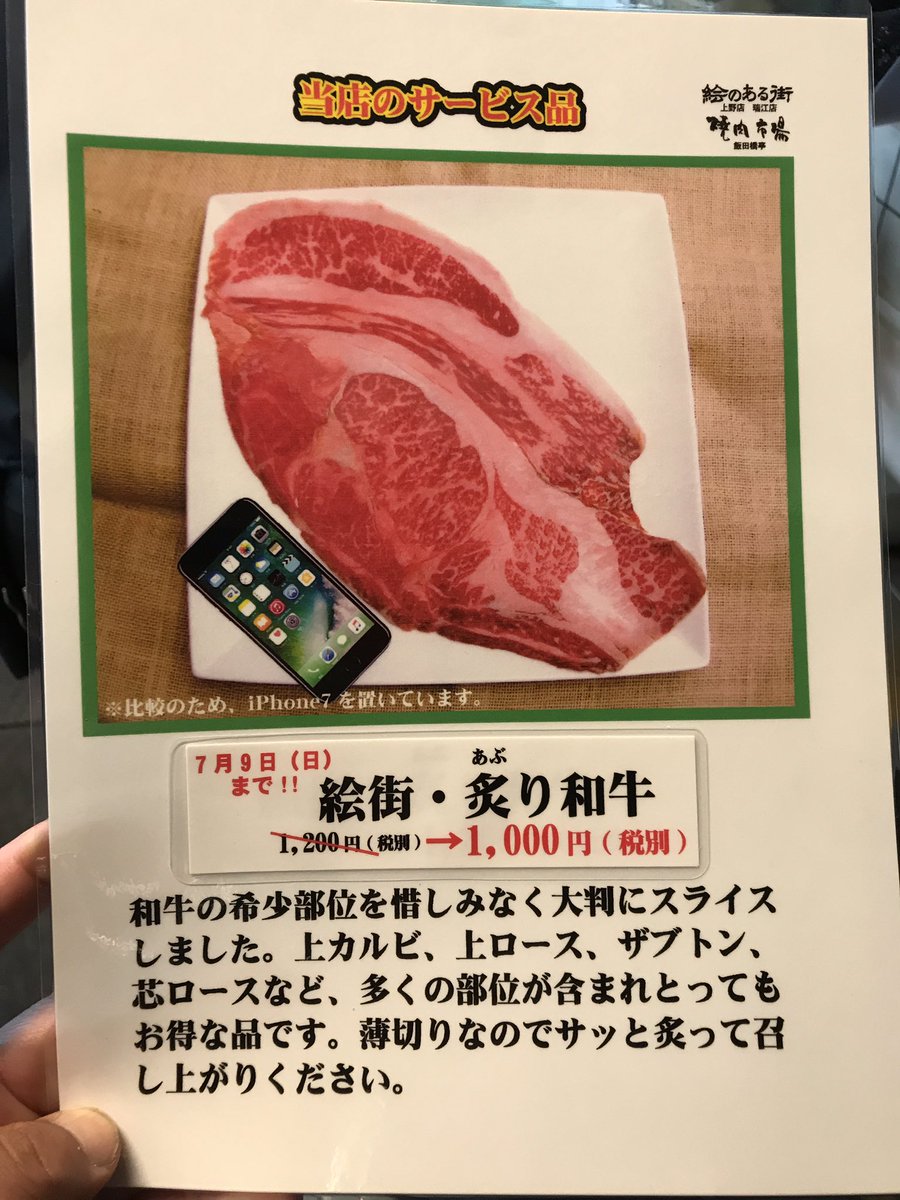 当店のサービス品
絵のある街
上野店 瑞江店
焼肉市場
飯田橋亭
※比較のため、iPhone7を置いています。
7月9日（日）
まで!!
あぶ
絵街・炙り和牛
1,200円(税別)→1,000円(税別)
和牛の希少部位を惜しみなく大判にスライス
しました。上カルビ、上ロース、ザブトン、
芯ロースなど、多くの部位が含まれとっても
お得な品です。薄切りなのでサッと炙って召
し上がりください。